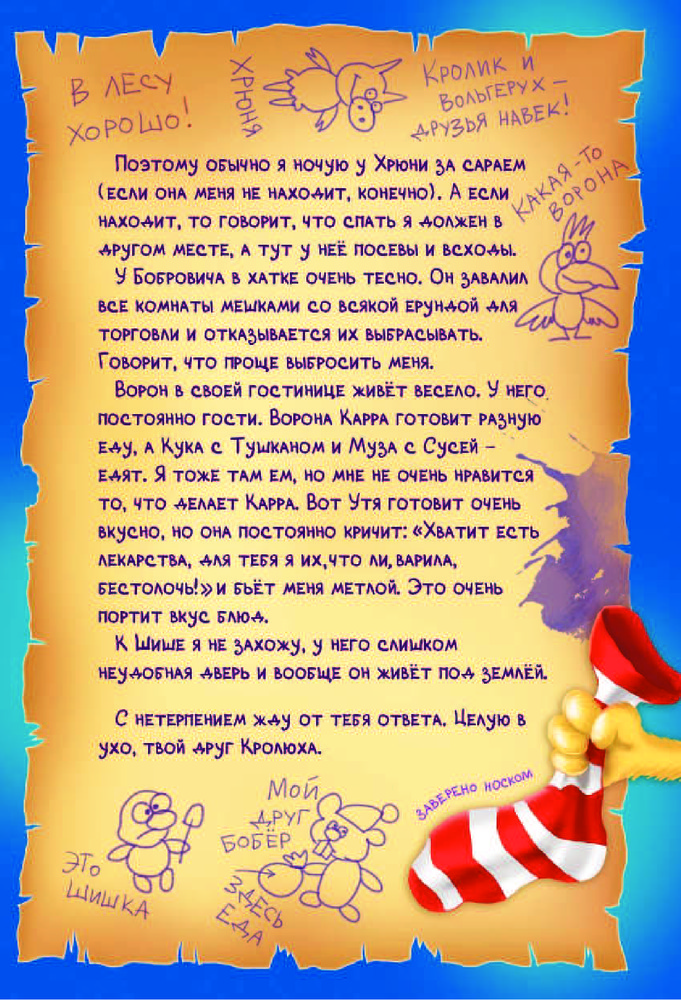 В ЛЕСУ
ХОРОШО!
ХРЮНЯ
КРОЛИК И
ВОЛЬГЕРУХ –
ДРУЗЬЯ НАВЕК!
КАКАЯ-ТО
ВОРОНА
Поэтому обычно я ночую у Хрюни за сараем
(если она меня не находит, конечно). А если
находит, то говорит, что спать я должен в
другом месте, а тут у неё посевы и всходы.
У Бобровича в хатке очень тесно. Он завалил
все комнаты мешками со всякой ерундой для
торговли и отказывается их выбрасывать.
Говорит, что проще выбросить меня.
Ворон в своей гостинице живёт весело. У него
постоянно гости. Ворона Карра готовит разную
еду, а Кука с Тушканом и Муза с Сусей –
едят. Я тоже там ем, но мне не очень нравится
то, что делает Карра. Вот Утя готовит очень
вкусно, но она постоянно кричит: «Хватит есть
лекарства, для тебя я их,что ли,варила,
бестолочь!» и бьёт меня метлой. Это очень
портит вкус блюд.
К Шише я не захожу, у него слишком
неудобная дверь и вообще он живёт под землёй.
С нетерпением жду от тебя ответа. Целую в
ухо, твой друг Кролюха.
ЗАВЕРЕНО НОСКОМ
ЭТО
ШИШКА
МОЙ
ДРУГ
БОБЁР
ЗДЕСЬ
ЕДА